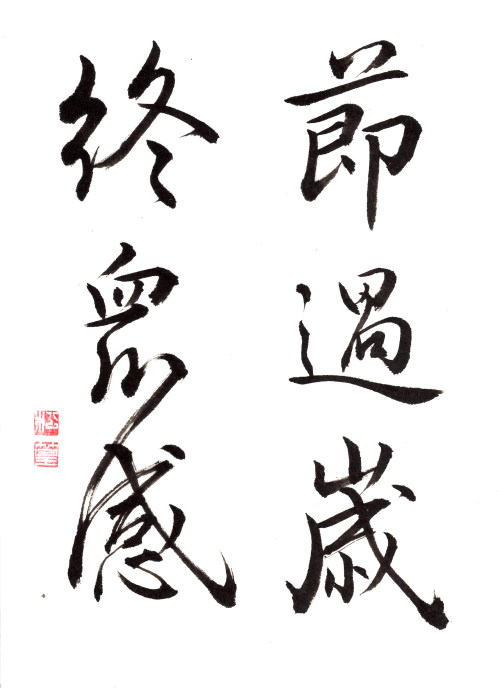 節過歳
終衆感